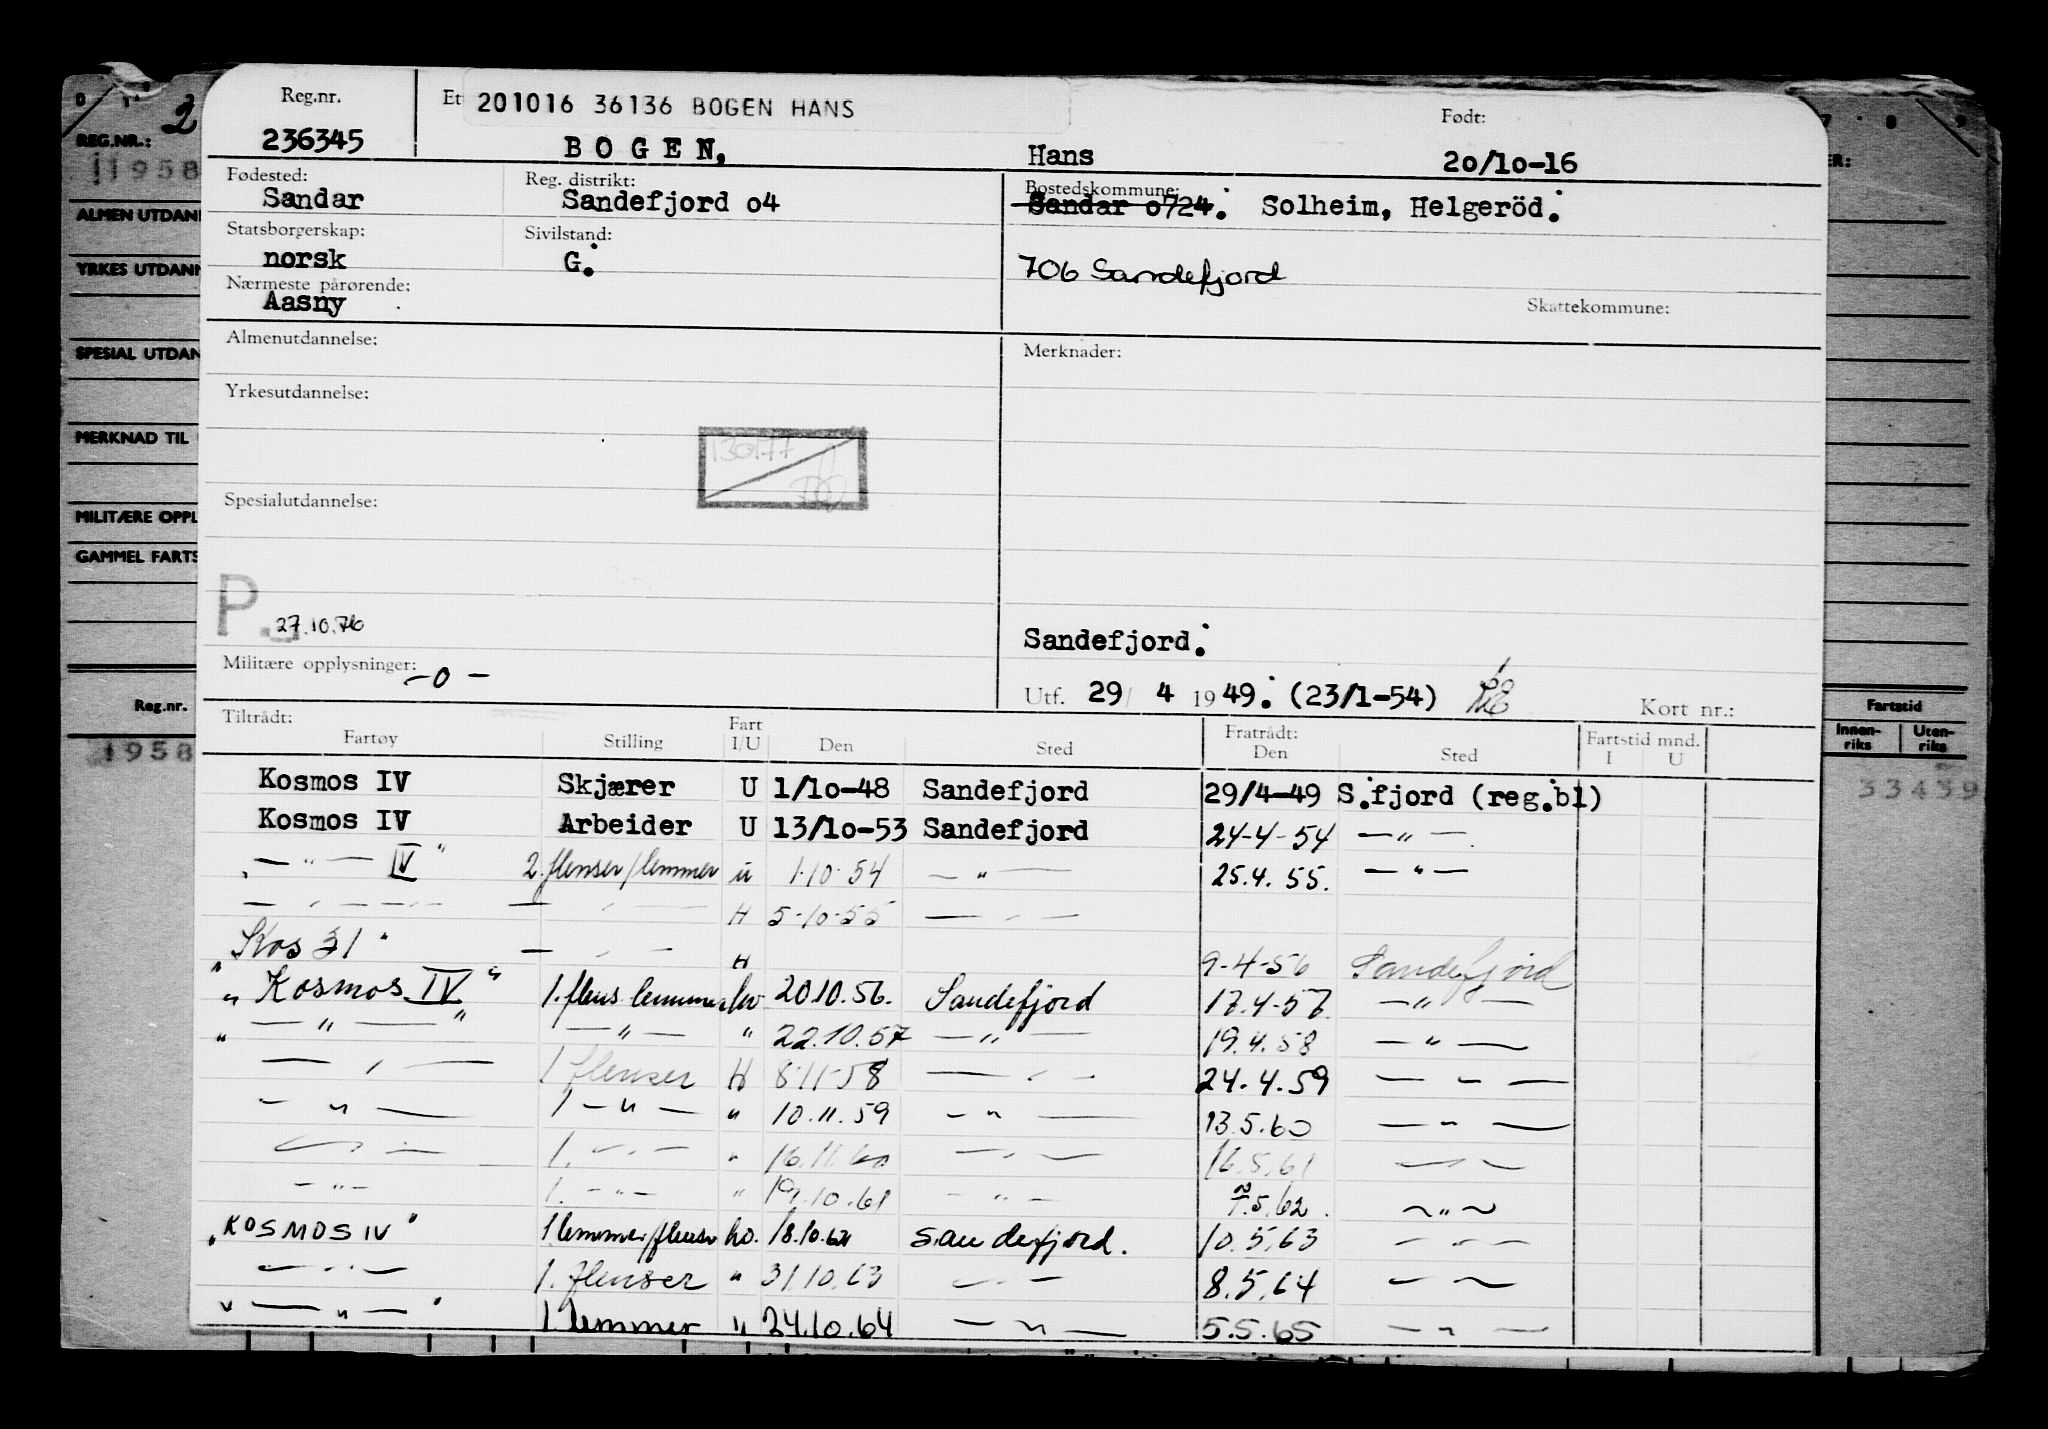 0 1
2
REG.NR.:
1958
ALMEN UTDAN
YRKES UTDAN
SPESIAL UTDAN
MERKNAD TIL
MILITÆRE OPPL
GAMMEL FARTS
Reg.nr.
1958
Reg.nr. Et 201016 36136 BOGEN HANS Født:
236345 BOGEN, Hans 20/10-16
Fødested: Reg. distrikt: Bostedskommune:
Sandar Sandefjord o4 Sandar o724. Solheim, Helgeröd.
Statsborgerskap: Sivilstand:
norsk G. 706 Sandefjord
Nærmeste pårørende: Skattekommune:
Aasny
Almenutdannelse: Merknader:
Yrkesutdannelse:
130177
Spesialutdannelse:
P.
27.10.76 Sandefjord.
Militære opplysninger: -0-
Utf. 29/ 4 1949. (23/1-54) Kort nr.:
Tiltrådt: Fart Fratrådt: Fartstid mnd.
Fartøy Stilling I/U Den Sted Den Sted I U
Kosmos IV Skjærer U 1/10-48 Sandefjord 29/4-49 S.fjord (reg.bl)
Kosmos IV Arbeider U 13/10-53 Sandefjord 24-4-54 — " —
— " — IV" 2. flenser/lemmer u 1.10.54 — " — 25.4.55. — " —
— " — — " — H 5-10-55 — " —
"Kos 31" — " — H 9-4-56 Sandefjord
"Kosmos IV" 1. flens lemmer hv 20.10.56. Sandefjord 17.4-57. — " —
" — " — " — " — " 22.10.57 — " — 19.4.58 — " —
— " — 1 flenser H 8-11-58 — " — 24.4.59 — " —
— " — 1 — " — " 10.11.59 — " — 13.5.60 — " —
— " — 1. — " — " 16.11.60 — " — 16.5.61 — " —
— " — 1. — " — " 19.10.61 — " — 7.5.62. — " —
"KOSMOS IV" 1 lemmer/flenser ho. 18.10.62 Sandefjord. 10.5.63 — " —
— " — 1. flenser " 31.10.63 — " — 8.5.64 — " —
" — " — " 1. lemmer " 24.10.64 — " — 5.5.65 — " —
7 8 9
ER:
Fartstid
Innen-riks Uten-riks
33439